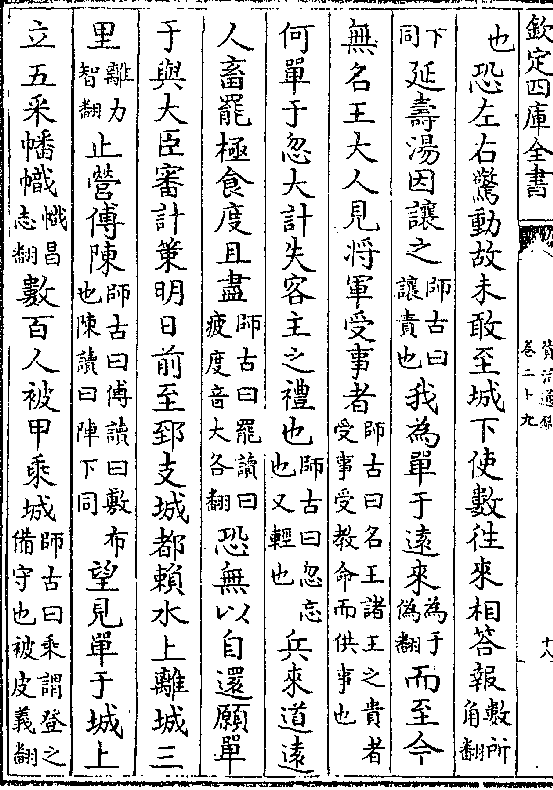 欽定四庫全書
資治通鑑
卷二十九
十八
也恐左右驚動故未敢至城下使數往來相答報數所角翻
下同延壽湯因讓之師古曰讓責也我為單于遠來為于偽翻而至今
無名王大人見将軍受事者師古曰名王諸王之貴者受事受教命而供事也
何單于忽大計失客主之禮也師古曰忽忘也又輕也兵來道遠
人畜罷極食度且盡師古曰罷讀曰疲度音大各翻恐無以自還願單
于與大臣審計策明日前至郅支城都賴水上離城三
里離力智翻止營傅陳師古曰傅讀曰敷布也陳讀曰陣下同望見單于城上
立五采幡幟幟昌志翻數百人被甲乘城師古曰乘謂登之備守也被皮義翻